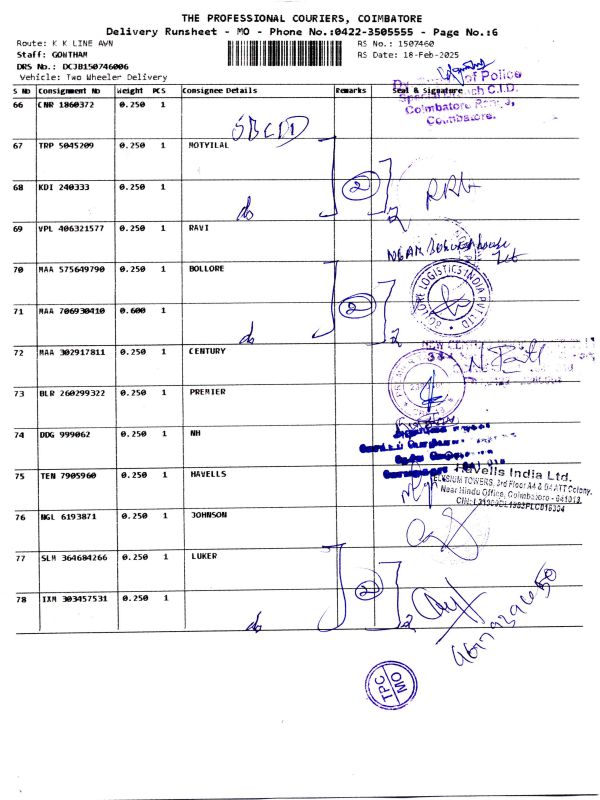 THE PROFESSIONAL COURIERS, COIMBATORE
Delivery Runsheet - MO - Phone No.:0422-3505555 - Page No.:6
Route: K K LINE AWN
RS No.: 1507460
Staff: GOWTHAM
RS Date: 18-Feb-2025
DRS No.: DCJB150746006
Vehicle: Two Wheeler Delivery
S No Consignment No Weight PCS Consignee Details Remarks Seal & Signature
of Police
Special Branch C.I.D.
Coimbatore
Coimbatore.
66 CNR 1860372 0.250 1
SBCID
67 TRP 5045209 0.250 1 MOTYILAL
2
68 KDI 240333 0.250 1
do 2
69 VPL 406321577 0.250 1 RAVI
70 MAA 575649790 0.250 1 BOLLORE
BOLLORE LOGISTICS INDIA PVT LTD
2
71 MAA 706930410 0.600 1
do 2
72 MAA 302917811 0.250 1 CENTURY
73 BLR 260299322 0.250 1 PREMIER
74 DDG 999062 0.250 1 NH
75 TEN 7905960 0.250 1 HAVELLS
Havells India Ltd.
ELYSIUM TOWERS, 3rd Floor A4 & B4 ATT Colony,
Near Hindu Office, Coimbatore - 641018.
76 NGL 6193871 0.250 1 JOHNSON
77 SLM 364684266 0.250 1 LUKER
2
78 IXM 303457531 0.250 1
do 2
TPC
MO